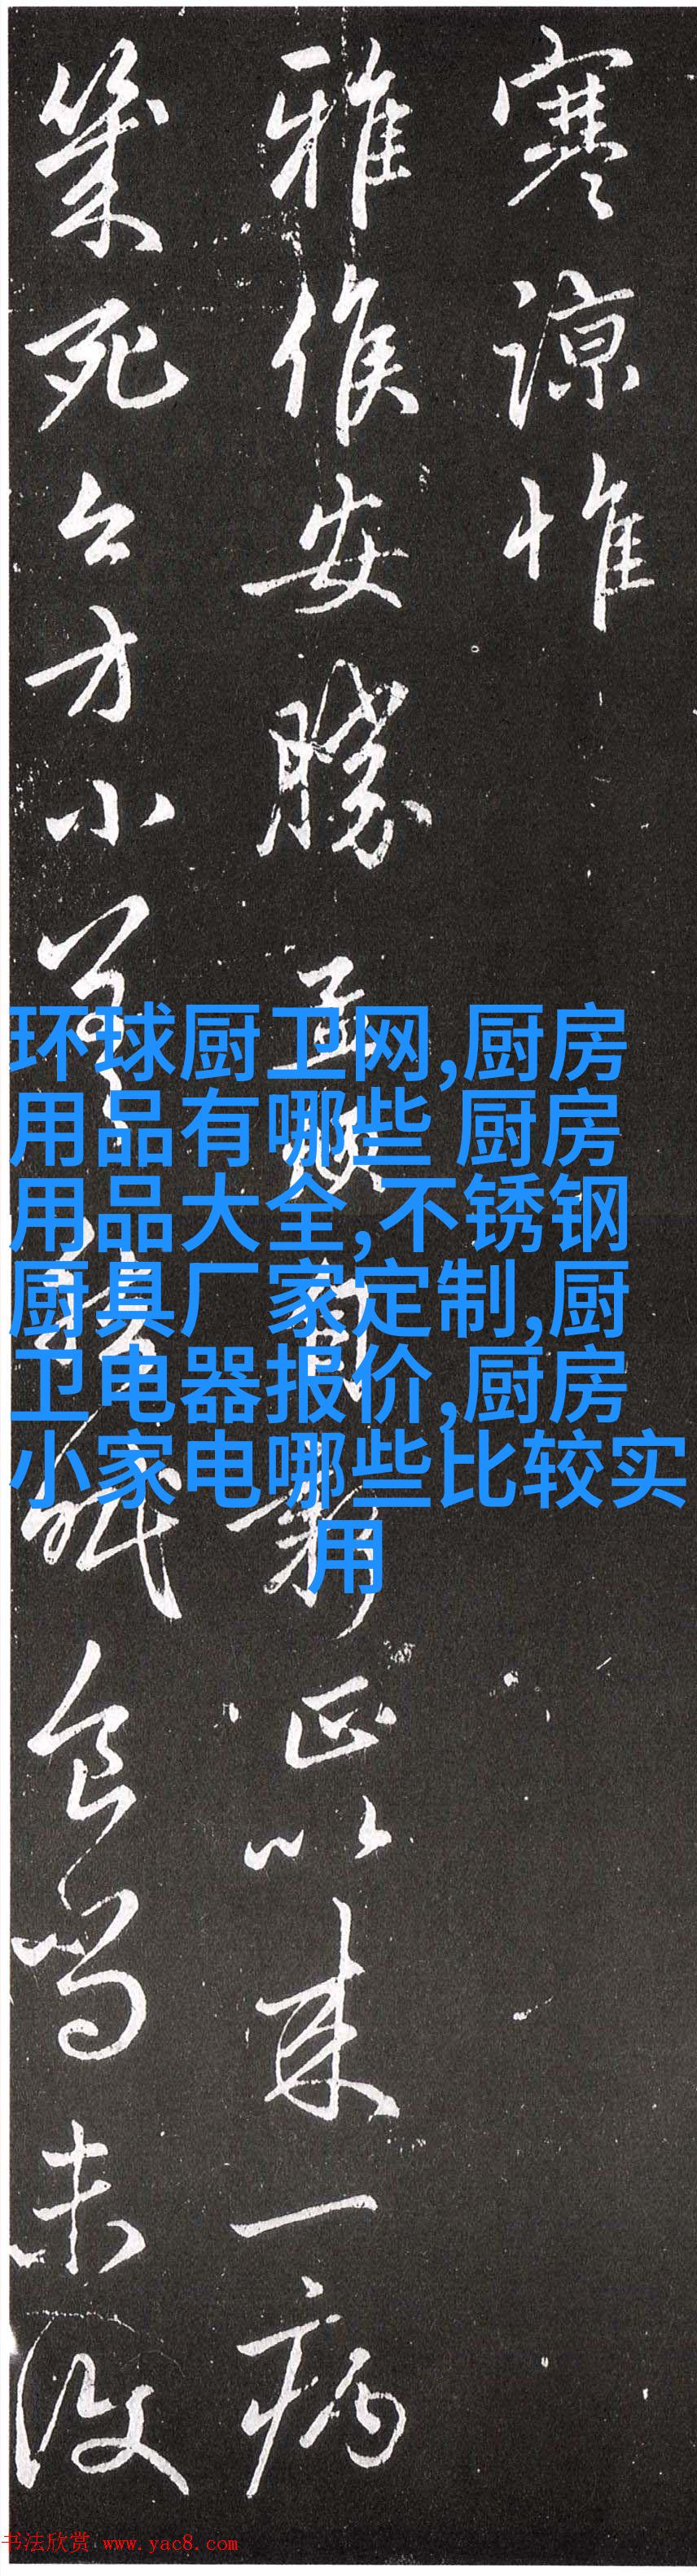 寒谅惟
雅候安勝孟
自新正以来一病
几死今方小
食尚未復
环球厨卫网,厨房
用品有哪些 厨房
用品大全,不锈钢
厨具厂家定制,厨
卫电器报价,厨房
小家电哪些比较实
用
书法欣赏 www.yac8.com